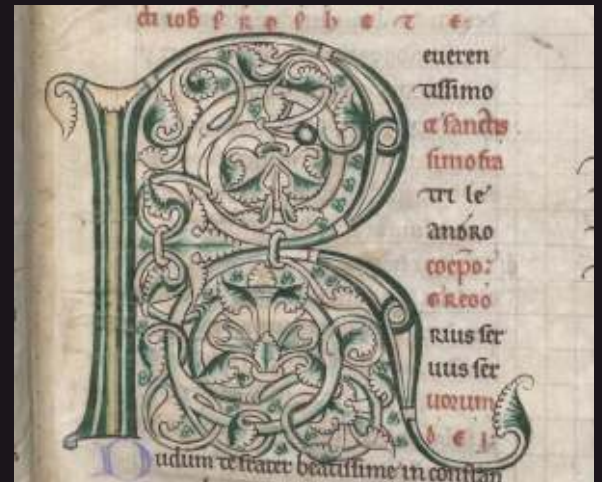 cti iob prophete:
R
everen
tissimo
et sanctis
simo fra
tri le
andro
coepo:
Grego
rius ser
uus ser
uorum
dei
Dudum te frater beatissime in constan